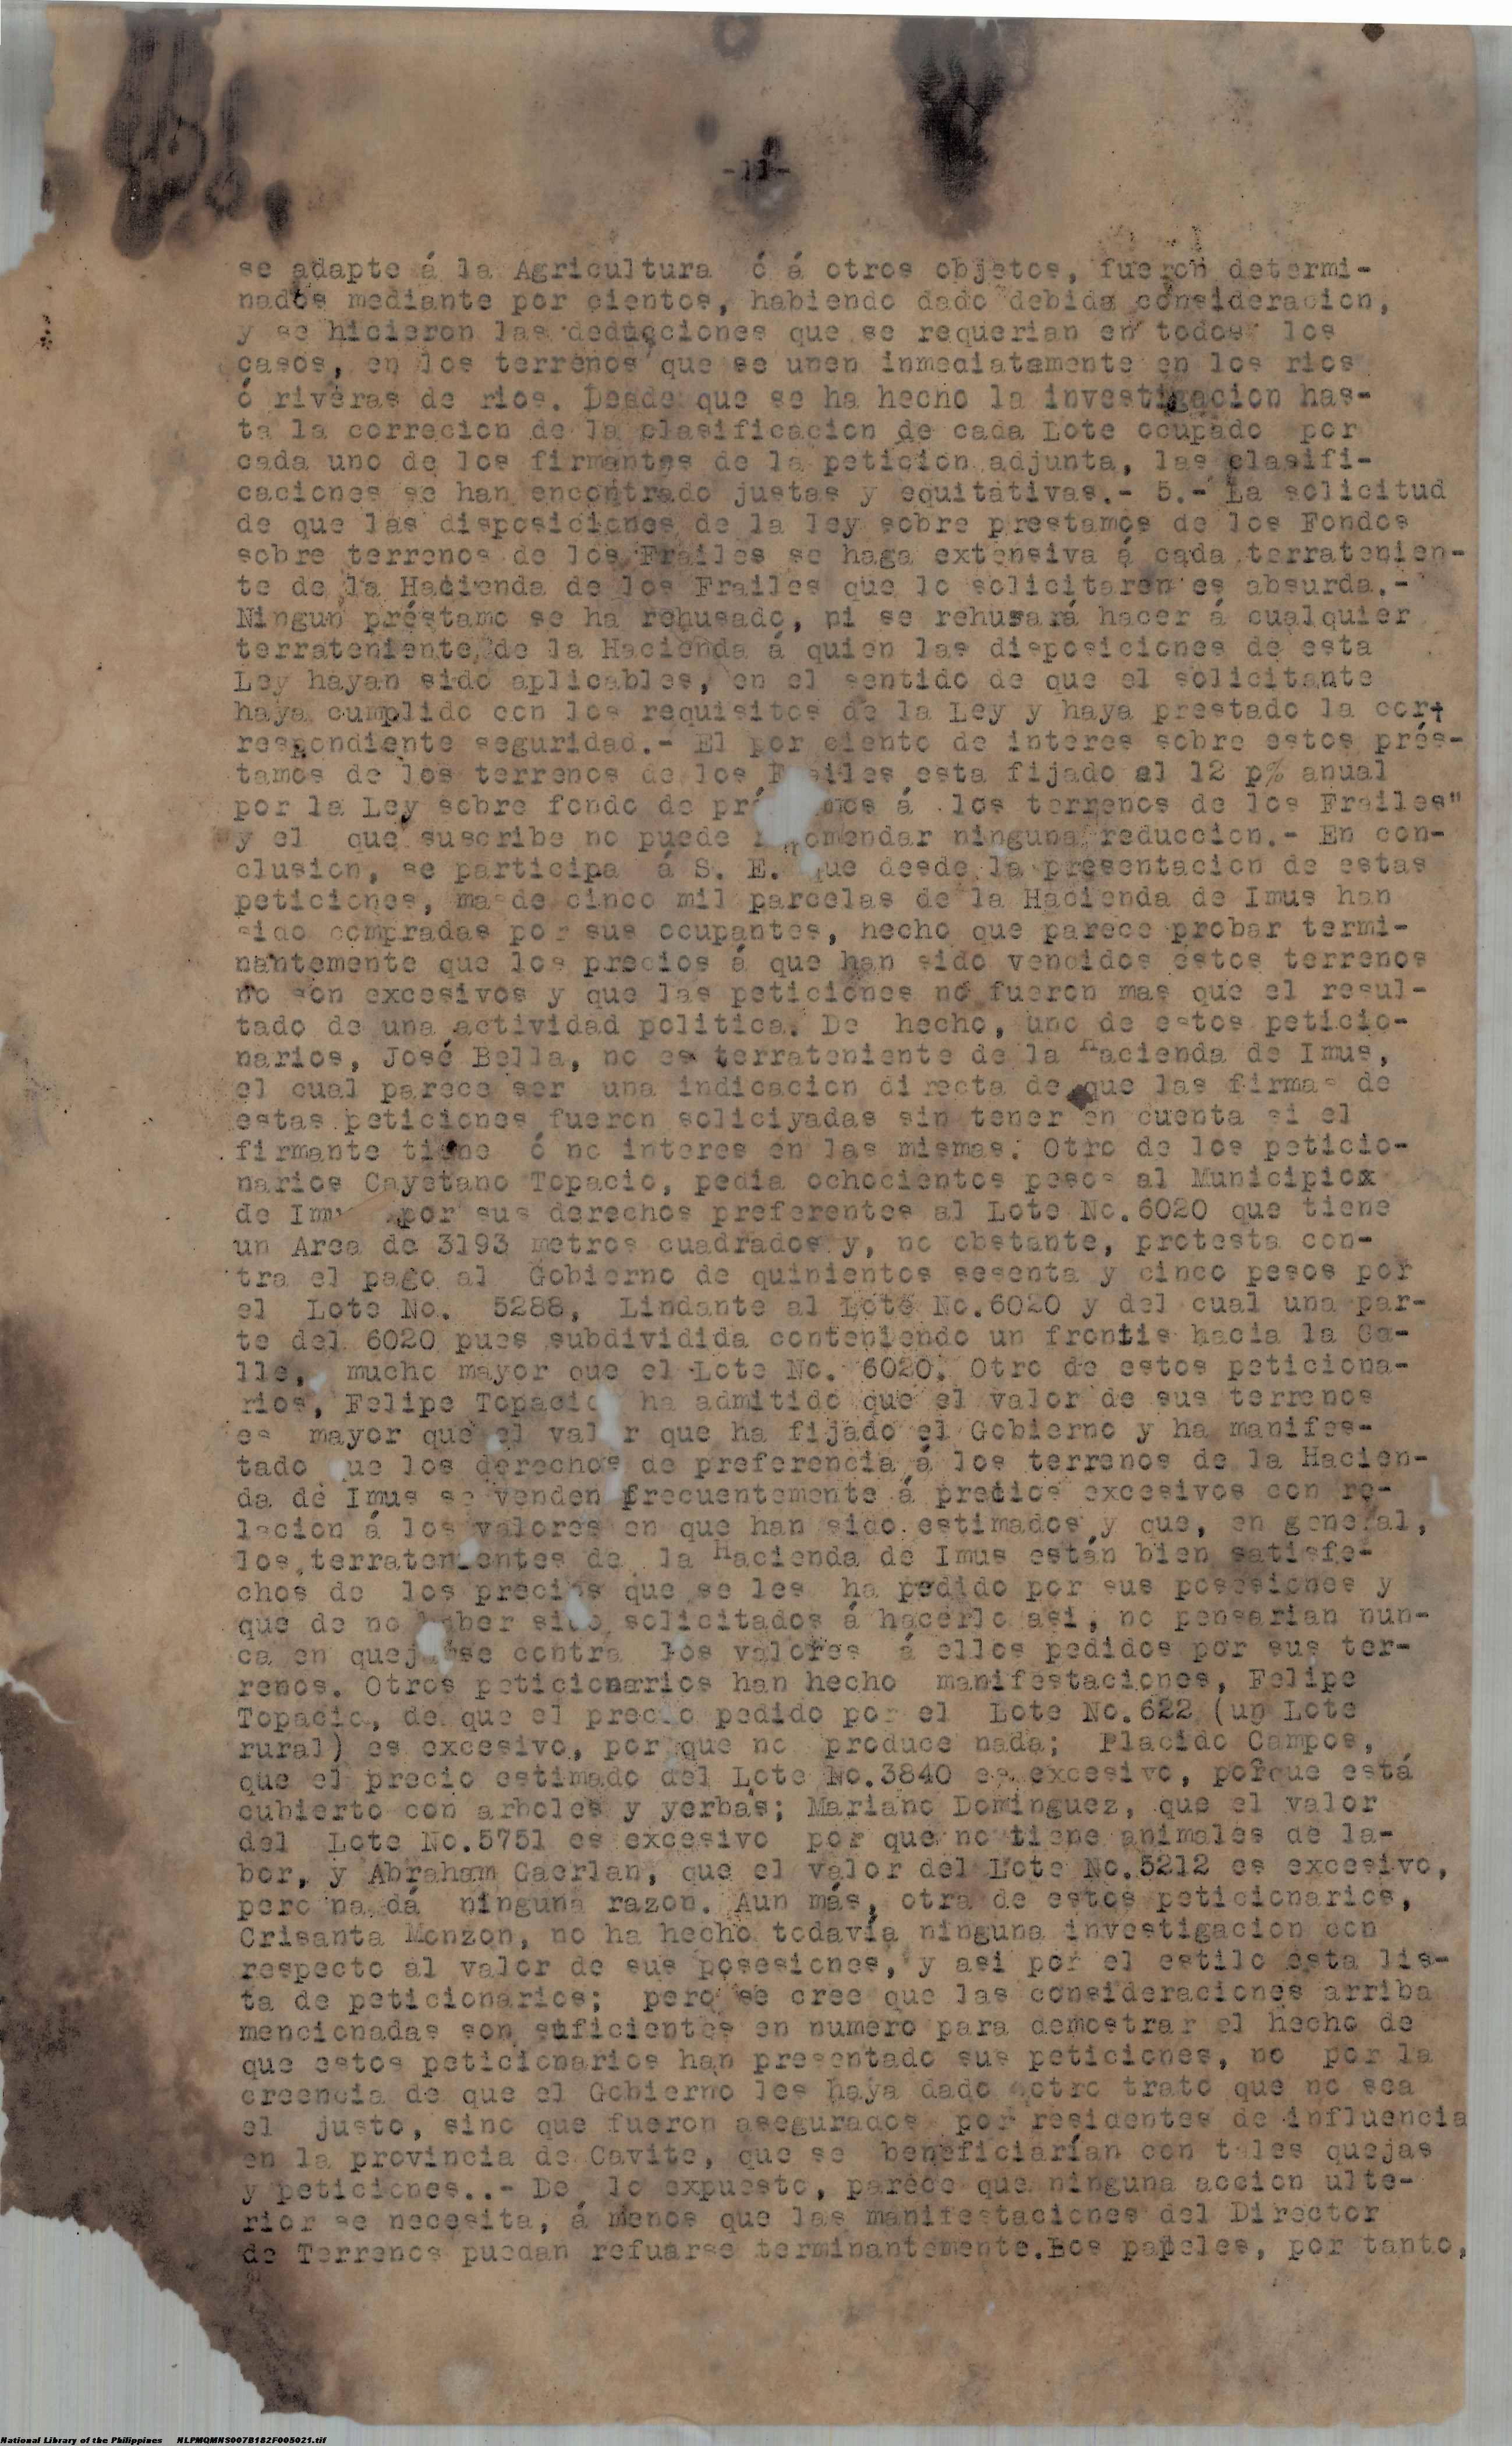 -11-
se adapte á la Agricultura ó á otros objetos, fueron determi-
nados mediante por cientos, habiendo dado debida consideracion,
y se hicieron las deducciones que se requerian en todos los
casos, en los terrenos que se unen inmediatamente en los rios
ó riveras de rios. Desde que se ha hecho la investigacion has-
ta la correcion de la clasificacion de cada Lote ocupado por
cada uno de los firmantes de la petición adjunta, las clasifi-
caciones se han encontrado justas y equitativas.- 5.- La solicitud
de que las disposiciones de la ley sobre prestamos de los Fondos
sobre terrenos de los Frailes se haga extensiva á cada terratenien-
te de la Hacienda de los Frailes que lo solicitaren es absurda.-
Ningun préstamo se ha rehusado, ni se rehusará hacer á cualquier
terrateniente de la Hacienda á quien las disposiciones de esta
Ley hayan sido aplicables, en el sentido de que el solicitante
haya cumplido con los requisitos de la Ley y haya prestado la cor+
respondiente seguridad.- El por ciento de interes sobre estos prés-
tamos de los terrenos de los F ailes esta fijado al 12 p% anual
por la Ley sobre fondo de pré mos á los terrenos de los Frailes"
y el que suscribe no puede r omendar ninguna reduccion.- En con-
clusion, se participa á S. E. que desde la presentacion de estas
peticiones, mas de cinco mil parcelas de la Hacienda de Imus han
sido compradas por sus ocupantes, hecho que parece probar termi-
nantemente que los precios á que han sido vencidos estos terrenos
no son excesivos y que las peticiones no fueron mas que el resul-
tado de una actividad politica. De hecho, uno de estos peticio-
narios, José Bella, no es terrateniente de la Hacienda de Imus,
el cual parece ser una indicacion directa de que las firmas de
estas peticiones fueron soliciyadas sin tener en cuenta si el
firmante tiene ó no interes en las mismas. Otro de los peticio-
narios Cayetano Topacio, pedia ochocientos pesos al Municipiox
de Imu por sus derechos preferentes al Lote No.6020 que tiene
un Area de 3193 metros cuadrados y, no obstante, protesta con-
tra el pago al Gobierno de quinientos sesenta y cinco pesos por
el Lote No. 5288, Lindante al Lote No.6020 y del cual una par-
te del 6020 pues subdividida conteniendo un frontis hacia la Ca-
lle, mucho mayor que el Lote No. 6020. Otro de estos peticiona-
rios, Felipe Topacio ha admitido que el valor de sus terrenos
es mayor que el val r que ha fijado el Gobierno y ha manifes-
tado que los derechos de preferencia á los terrenos de la Hacien-
da de Imus se venden frecuentemente á precios excesivos con re-
lacion á los valores en que han sido estimados y que, en general,
los terratenientes de la Hacienda de Imus están bien satisfe-
chos de los precios que se les ha pedido por sus posesiones y
que de no haber sido solicitados á hacerlo asi, no pensarian nun-
ca en quej rse contra los valores á ellos pedidos por sus ter-
renos. Otros peticionarios han hecho manifestaciones, Felipe
Topacio, de que el precio pedido por el Lote No.622 (un Lote
rural) es excesivo, por que no produce nada; Placido Campos,
que el precio estimado del Lote No.3840 es excesivo, porque está
cubierto con arboles y yerbas; Mariano Dominguez, que el valor
del Lote No.5751 es excesivo por que no tiene animales de la-
bor, y Abraham Gaerlan, que el valor del Lote No.5212 es excesivo,
pero na dá ninguna razon. Aun más, otra de estos peticionarios,
Crisanta Monzon, no ha hecho todavía ninguna investigacion con
respecto al valor de sus posesiones, y asi por el estilo esta lis-
ta de peticionarios; pero se cree que las consideraciones arriba
mencionadas son suficientes en numero para demostrar el hecho de
que estos peticionarios han presentado sus peticiones, no por la
creencia de que el Gobierno les haya dado otro trato que no sea
el justo, sino que fueron asegurados por residentes de influencia
en la provincia de Cavite, que se beneficiarían con tales quejas
y peticiones..- De lo expuesto, parece que ninguna accion ulte-
rior se necesita, á menos que las manifestaciones del Director
de Terrenos puedan refuarse terminantemente.Los papeles, por tanto,
National Library of the Philippines NLPMQMNS007B182F005021.tif